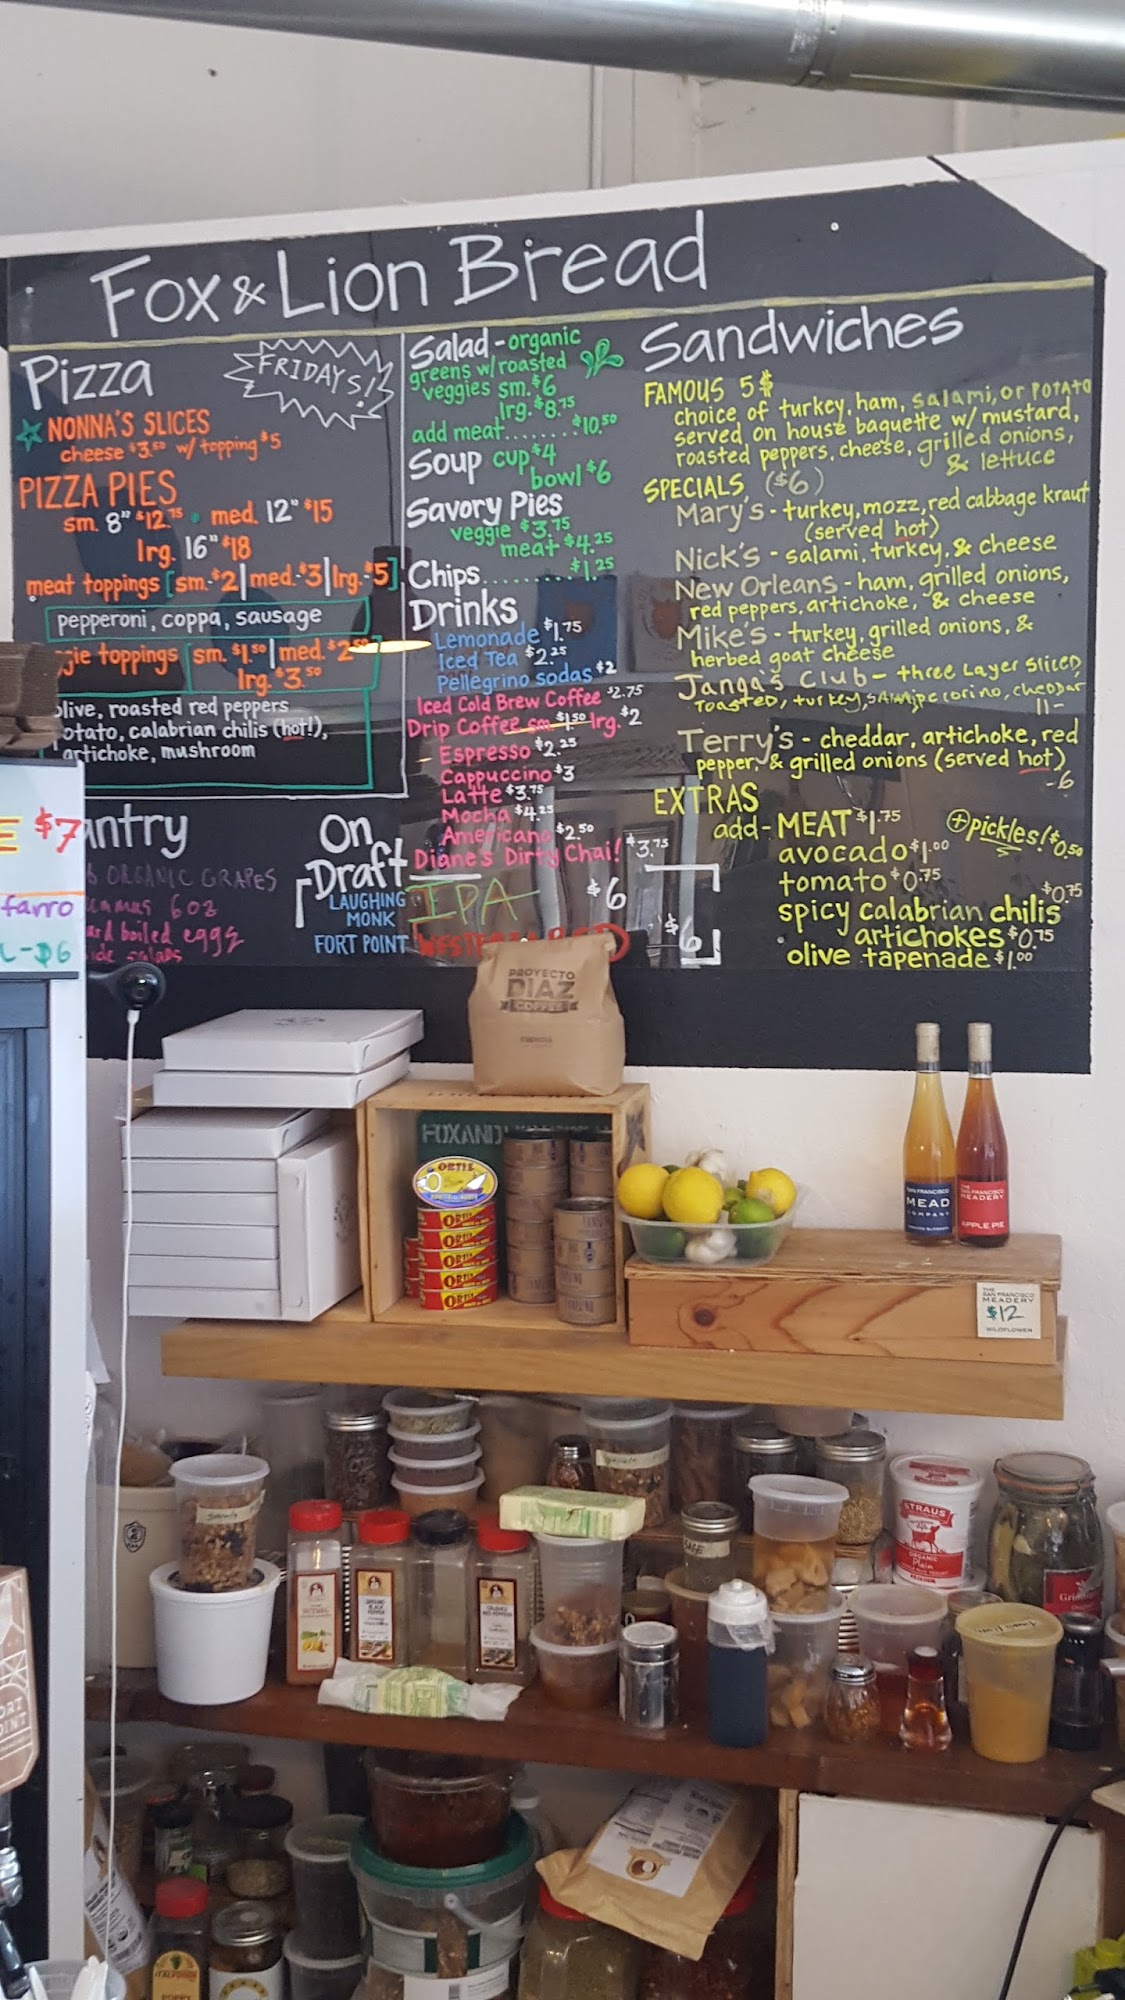 Fox & Lion Bread
Pizza
FRIDAYS!
NONNA'S SLICES
cheese $3.50 w/ topping $5
PIZZA PIES
sm. 8" $12.75 • med. 12" $15
lrg. 16" $18
meat toppings [sm.-$2|med.-$3|lrg.-$5]
pepperoni, coppa, sausage
gie toppings [sm. $1.50|med. $2.50
lrg. $3.50
olive, roasted red peppers
potato, calabrian chilis (hot!),
artichoke, mushroom
antry
ORGANIC GRAPES
6oz
ard boiled eggs
ide salads
E $7
farro
L-$6
Salad - organic
greens w/ roasted
veggies sm. $6
lrg. $8.75
add meat....... $10.50
Soup cup $4
bowl $6
Savory Pies
veggie $3.75
meat $4.25
Chips........$1.25
Drinks
Lemonade $1.75
Iced Tea $2.25
Pellegrino sodas $2
Iced Cold Brew Coffee $2.75
Drip Coffee sm. $1.50 lrg. $2
Espresso $2.25
Cappuccino $3
Latte $3.75
Mocha $4.25
Americano $2.50
Diane's Dirty Chai! $3.75
On Draft
LAUGHING
MONK
IPA $6
FORT POINT
$6
Sandwiches
FAMOUS 5$
choice of turkey, ham, salami, or POTATO
served on house baguette w/ mustard,
roasted peppers, cheese, grilled onions,
& lettuce
SPECIALS ($6)
Mary's - turkey, mozz, red cabbage kraut
(served hot)
Nick's - salami, turkey, & cheese
New Orleans - ham, grilled onions,
red peppers, artichoke, & cheese
Mike's - turkey, grilled onions, &
herbed goat cheese
Janga's Club - three Layer Sliced,
Toasted, turkey, salami, pecorino, cheddar
11-
Terry's - cheddar, artichoke, red
pepper, & grilled onions (served hot)
-6
EXTRAS
add - MEAT $1.75
avocado $1.00
tomato $0.75
spicy calabrian chilis $0.75
artichokes $0.75
olive tapenade $1.00
+pickles! $0.50
PROYECTO
DIAZ
COFFEE
FOXAND
ORTIZ
ORTIZ
ORTIZ
ORTIZ
ORTIZ
ORTIZ
SAN FRANCISCO
MEAD
COMPANY
THE
SAN FRANCISCO
MEADERY
APPLE PIE
THE
SAN FRANCISCO
MEADERY
$12
WILDFLOWER
STRAUS
ORGANIC
Plain
NUTMEG
GROUND
BLACK
PEPPER
CRUSHED
RED PEPPER
SAGE
ORT
OINT
POPPY